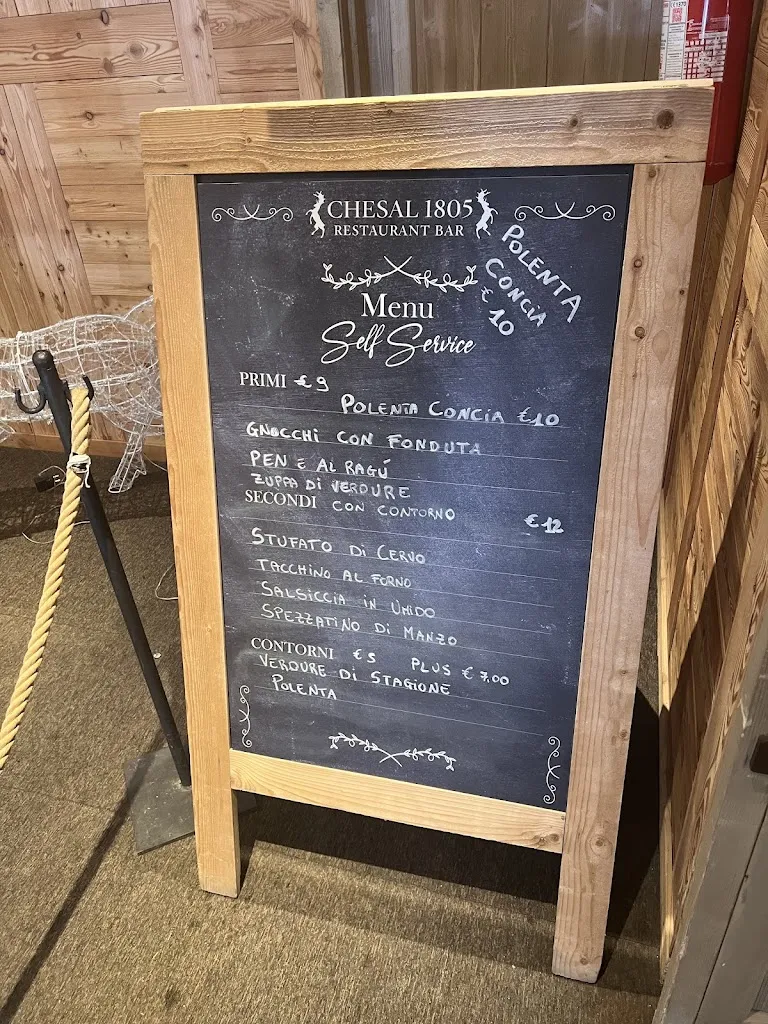 CHESAL 1805
RESTAURANT BAR
POLENTA
CONCIA
€ 10
Menu
Self Service
PRIMI € 9
POLENTA CONCIA €10
GNOCCHI CON FONDUTA
PEN E AL RAGÚ
ZUPPA DI VERDURE
SECONDI CON CONTORNO €12
STUFATO DI CERVO
TACCHINO AL FORNO
SALSICCIA IN UMIDO
SPEZZATINO DI MANZO
CONTORNI € 5 PLUS € 7,00
VERDURE DI STAGIONE
POLENTA